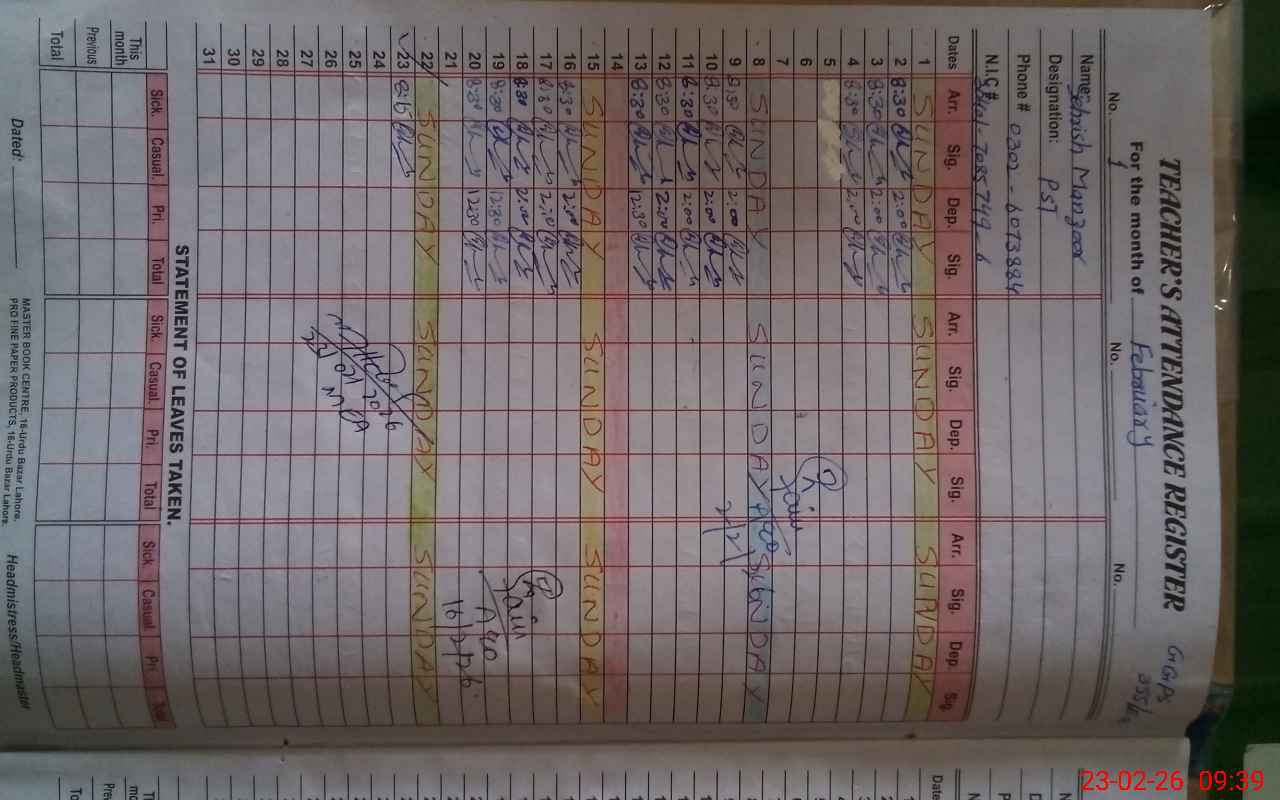 TEACHER'S ATTENDANCE REGISTER
GGPS
For the month of February
No. 1 No. No.
Name: Sehrish Manzoor
Designation: PST
Phone # 0302-6073884
N.I.C #
Dates Arr. Sig. Dep. Sig. Arr. Sig. Dep. Sig. Arr. Sig. Dep. Sig.
1 SUNDAY SUNDAY SUNDAY
2 8:30 2:00
3 8:30 2:00
4 8:30 2:00
5
6
7
8 SUNDAY SUNDAY SUNDAY
9 8:30 2:00
10 8:30 2:00
11 8:30 2:00
12 8:30 2:00
13 8:30 12:30
14
15 SUNDAY SUNDAY SUNDAY
16 8:30 2:00
17 8:30 2:00
18 8:30 2:00
19 8:30 12:30
20 8:30 12:30
21
22 SUNDAY SUNDAY SUNDAY
23
24
25
26
27
28
29
30
31
16/2/26
MEA
STATEMENT OF LEAVES TAKEN.
Sick. Casual. Pri. Total Sick. Casual. Pri. Total Sick Casual Pri Total
This month
Previous
Total
Dated:
MASTER BOOK CENTRE, 16-Urdu Bazar Lahore.
PRO FINE PAPER PRODUCTS, 16-Urdu Bazar Lahore.
Headmistress/Headmaster
23-02-26 09:39